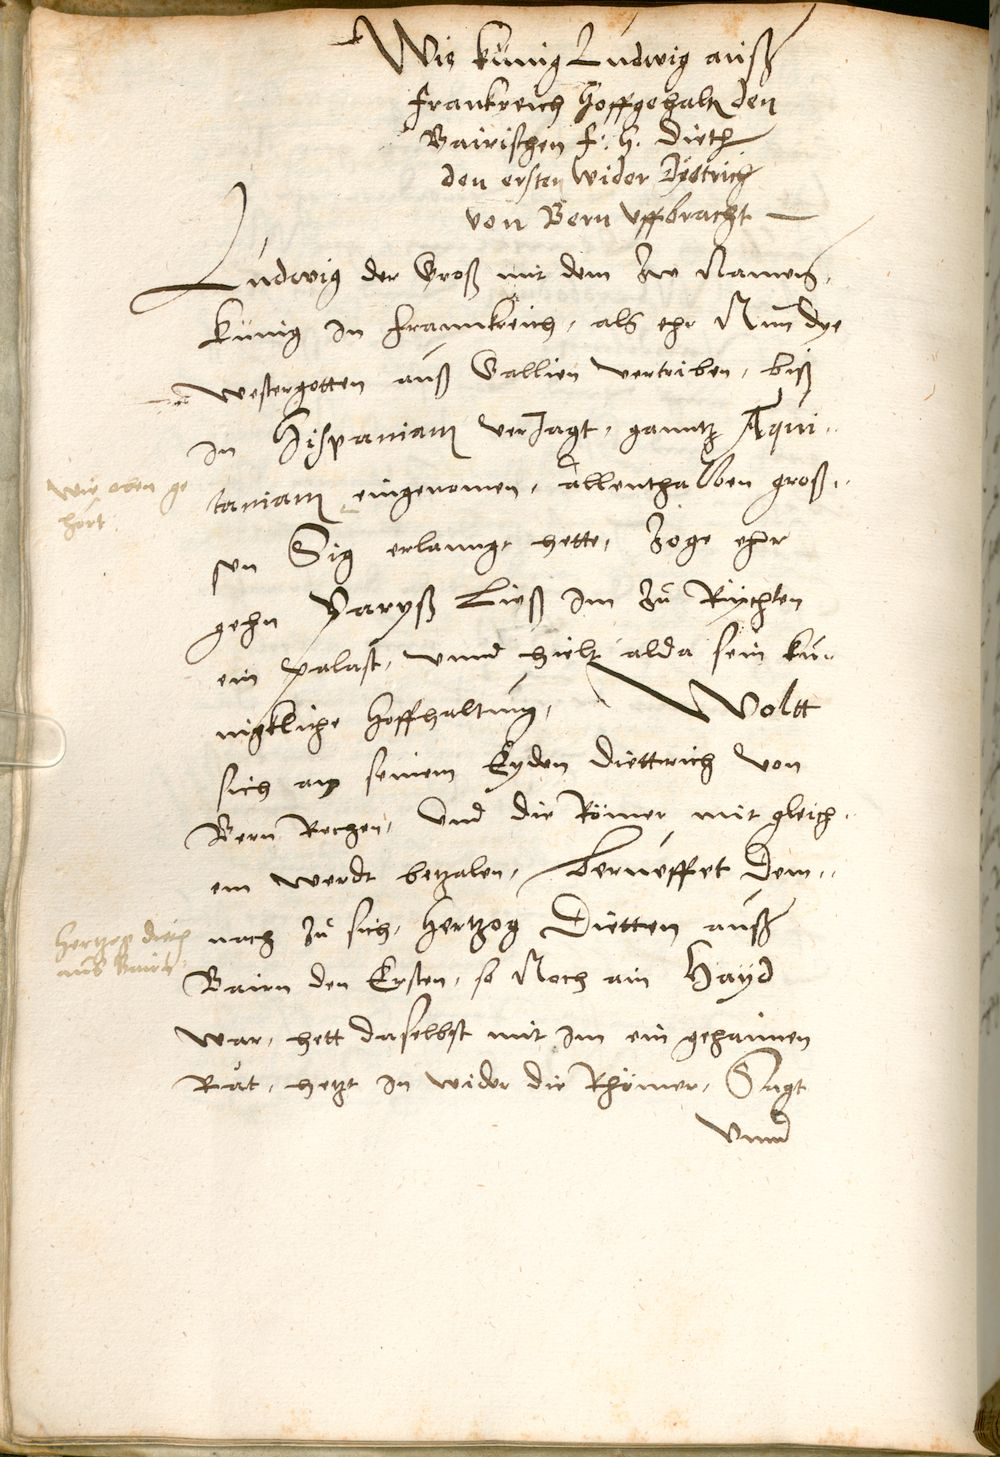 Wie künig Ludwig auß
Frankreich hoffgehaltn den
Bairischen f: h. Dieth
den ersten wider Dyetrich
von Bern uffbracht —
Ludwig der Groß mit dem Zw Namen,
künig in Frannkreich, als ehr Nun dye
westergotten auß Gallien vertriben, biß
in Hispaniam verJagt, ganntz Aqui-
wie oben ge
hort
taniam eingenomen, allenthalben groß-
sen Sig erlanngt hette, Zoge ehr
gehn Paryß Ließ im zu Richten
ein palast, vnnd hielt alda sein kü-
nigkliche hoffhaltung, Woltt
sich an seinem Eyden Diettrich von
Bern Rechen, vnd die Römer mit gleich-
em werdt betzalen, berueffet dem-
Hertzog Dieth
aus Bairn
nach zu sich, Hertzog Dietten auß
Bairn den Ersten, so Noch ain Hayd
war, hett daselbst mit im ein gehaimen
Rat, hetzt in wider die Rhömer, Sagt
vnnd